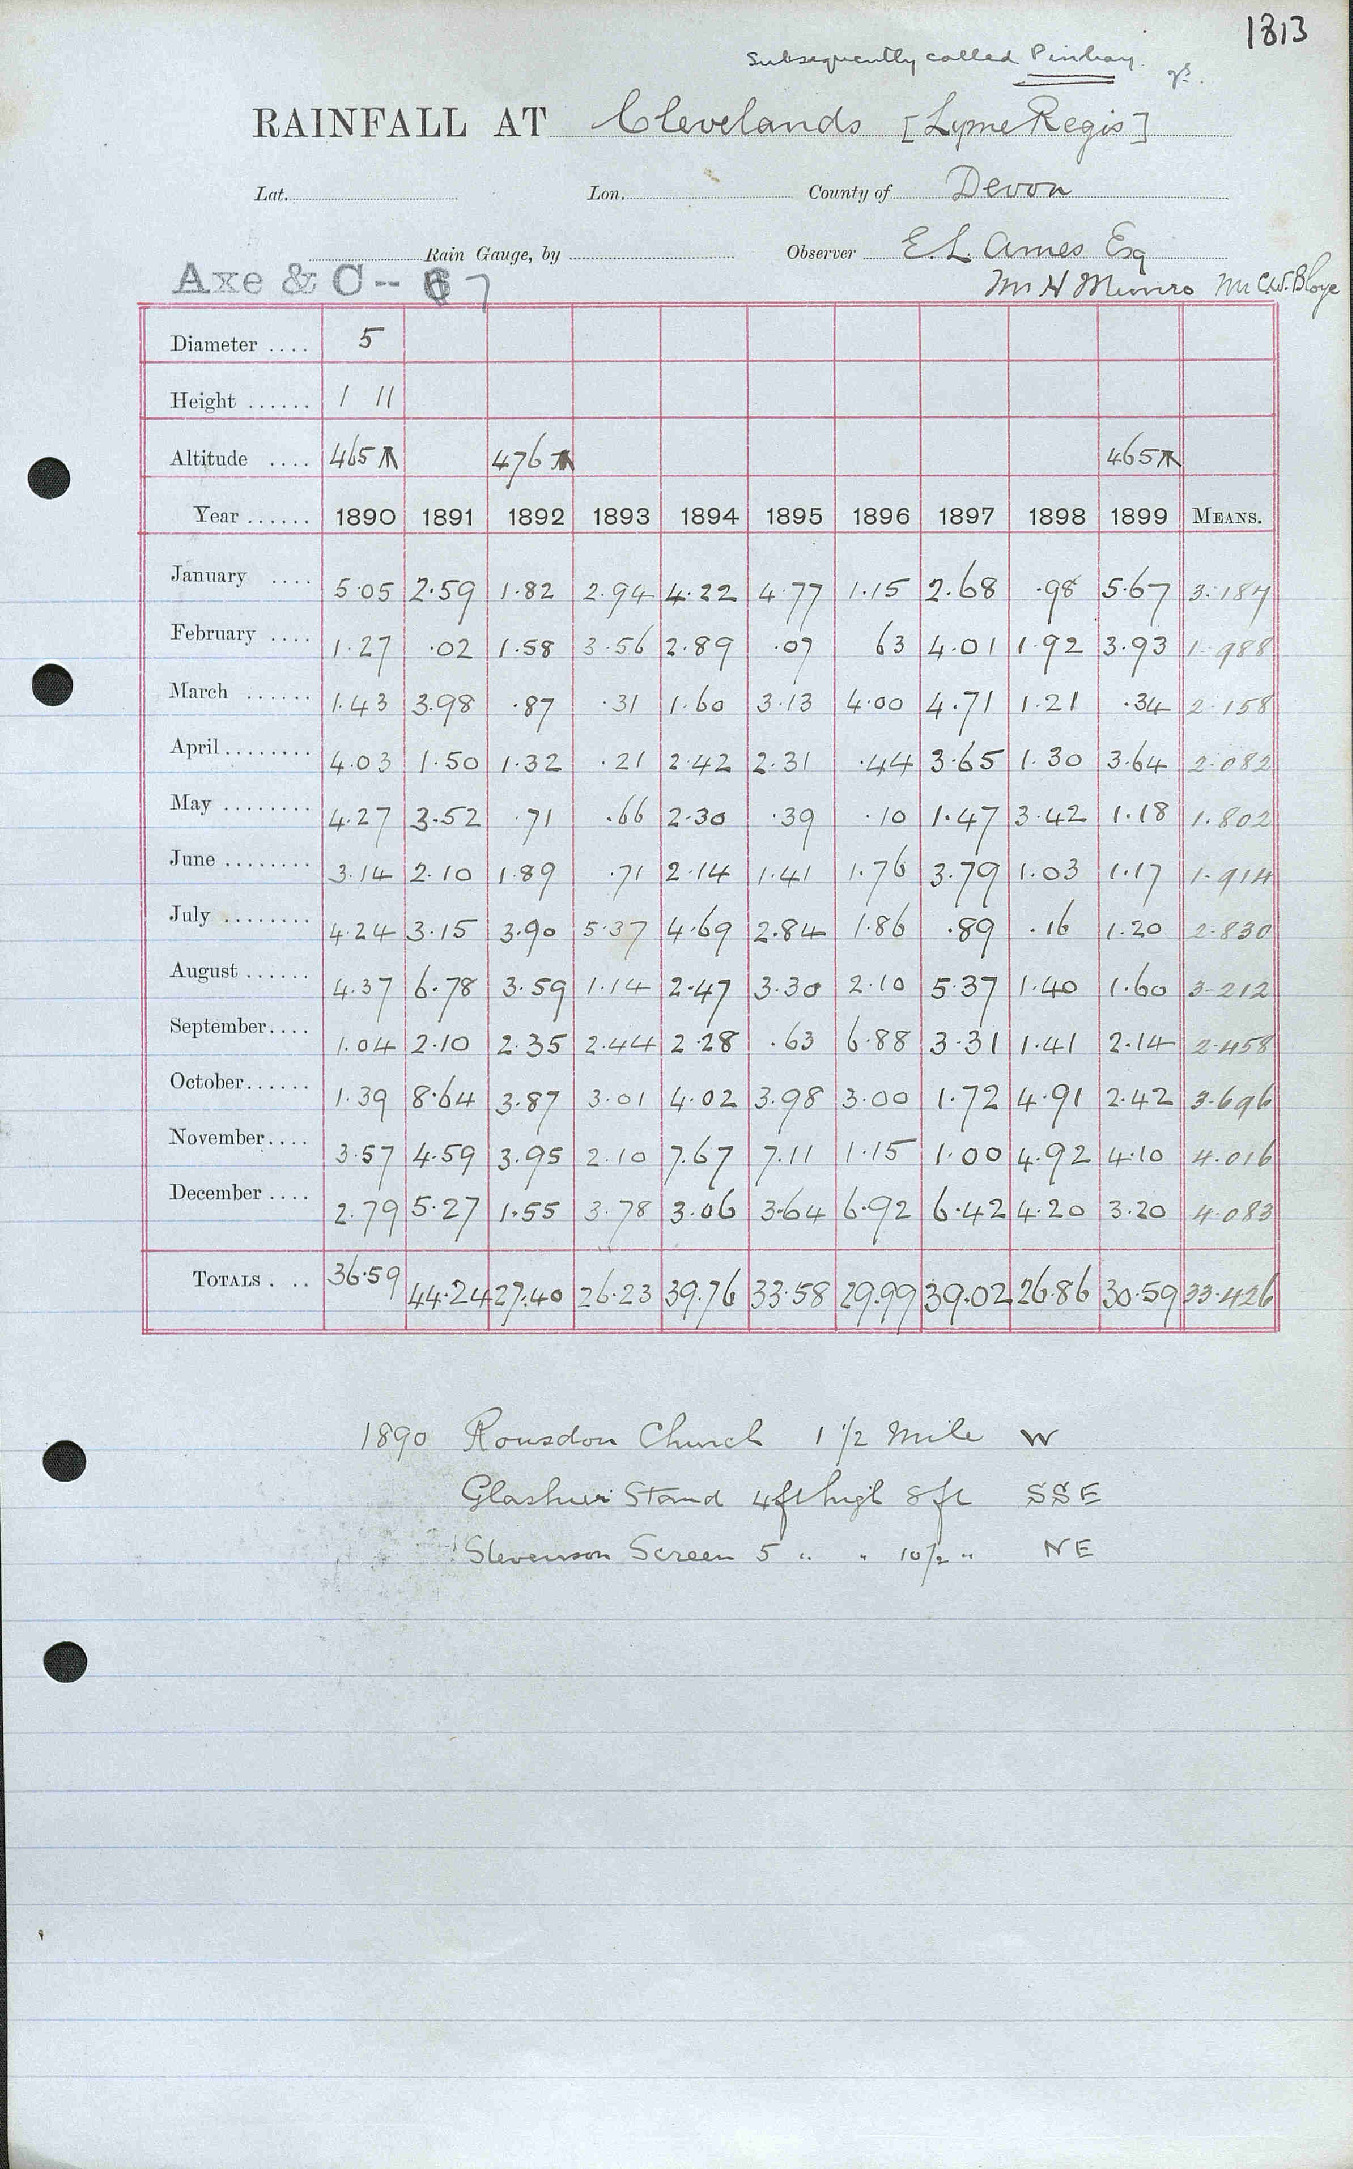 1813
Subsequently called Pinhay.
RAINFALL AT Clevelands [Lyme Regis]
Lat. Lon. County of Devon
Rain Gauge, by Observer E.L. Ames Esq
Axe & C -- 67 Mr H Munro Mr C.W. Bloye
Diameter .... 5
Height ...... 1 11
Altitude .... 465 476 465
Year ...... 1890 1891 1892 1893 1894 1895 1896 1897 1898 1899 MEANS.
January .... 5.05 2.59 1.82 2.94 4.22 4.77 1.15 2.68 .98 5.67 3.187
February .... 1.27 .02 1.58 3.56 2.89 .07 63 4.01 1.92 3.93 1.988
March ...... 1.43 3.98 .87 .31 1.60 3.13 4.00 4.71 1.21 .34 2.158
April ........ 4.03 1.50 1.32 .21 2.42 2.31 .44 3.65 1.30 3.64 2.082
May ........ 4.27 3.52 .71 .66 2.30 .39 .10 1.47 3.42 1.18 1.802
June ........ 3.14 2.10 1.89 .71 2.14 1.41 1.76 3.79 1.03 1.17 1.914
July ........ 4.24 3.15 3.90 5.37 4.69 2.84 1.86 .89 .16 1.20 2.830
August ...... 4.37 6.78 3.59 1.14 2.47 3.30 2.10 5.37 1.40 1.60 3.212
September.... 1.04 2.10 2.35 2.44 2.28 .63 6.88 3.31 1.41 2.14 2.458
October...... 1.39 8.64 3.87 3.01 4.02 3.98 3.00 1.72 4.91 2.42 3.696
November.... 3.57 4.59 3.95 2.10 7.67 7.11 1.15 1.00 4.92 4.10 4.016
December .... 2.79 5.27 1.55 3.78 3.06 3.64 6.92 6.42 4.20 3.20 4.083
TOTALS . .. 36.59 44.24 27.40 26.23 39.76 33.58 29.99 39.02 26.86 30.59 33.426
1890 Rousdon Church 1 1/2 Mile W
Glashier Stand 4ft high 8 ft SSE
Stevenson Screen 5 " " 10 1/2 " NE